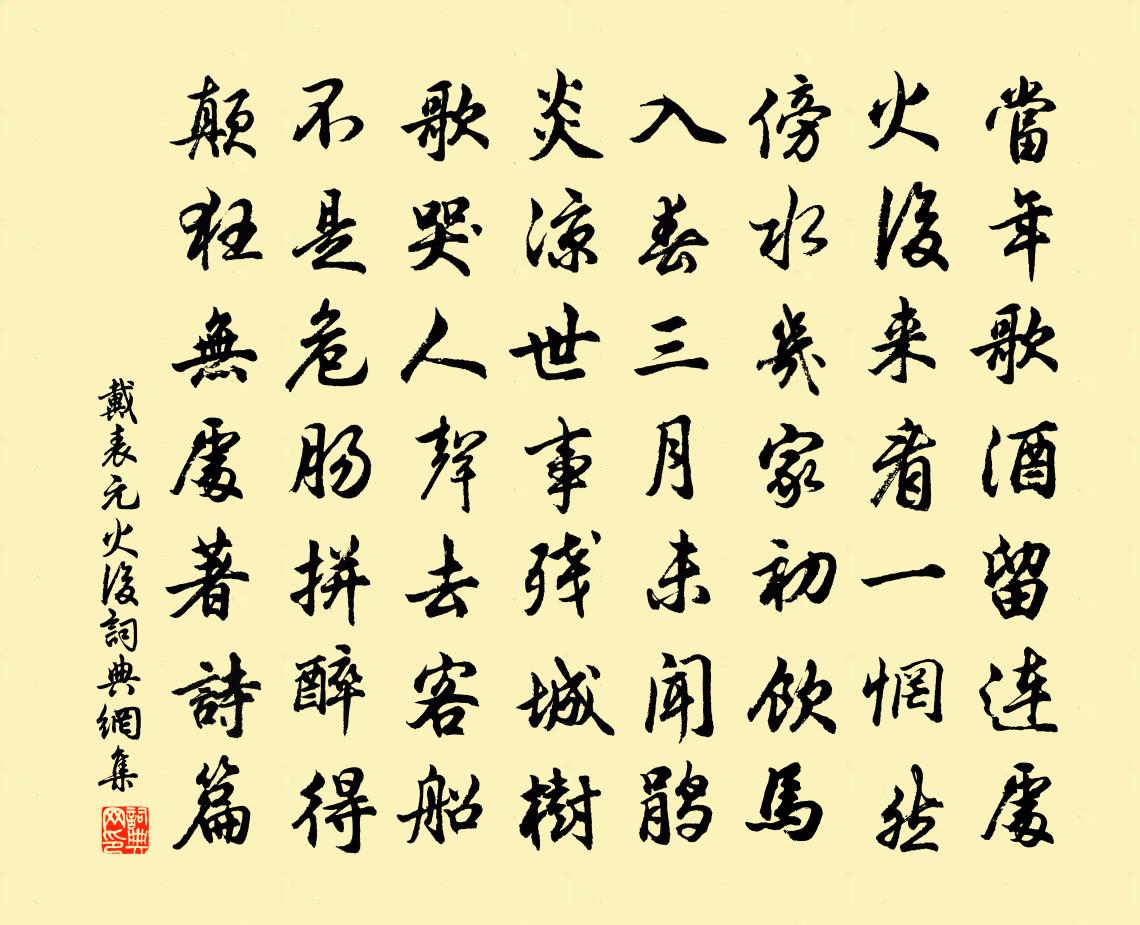 當年歌酒留連處
火後来看一惘然
傍水幾家初飲馬
入春三月未聞鵑
炎涼世事殘城樹
歌哭人聲去客船
不是危腸拼醉得
顛狂無處著詩篇
戴表元火後詞典網集
詞典網印